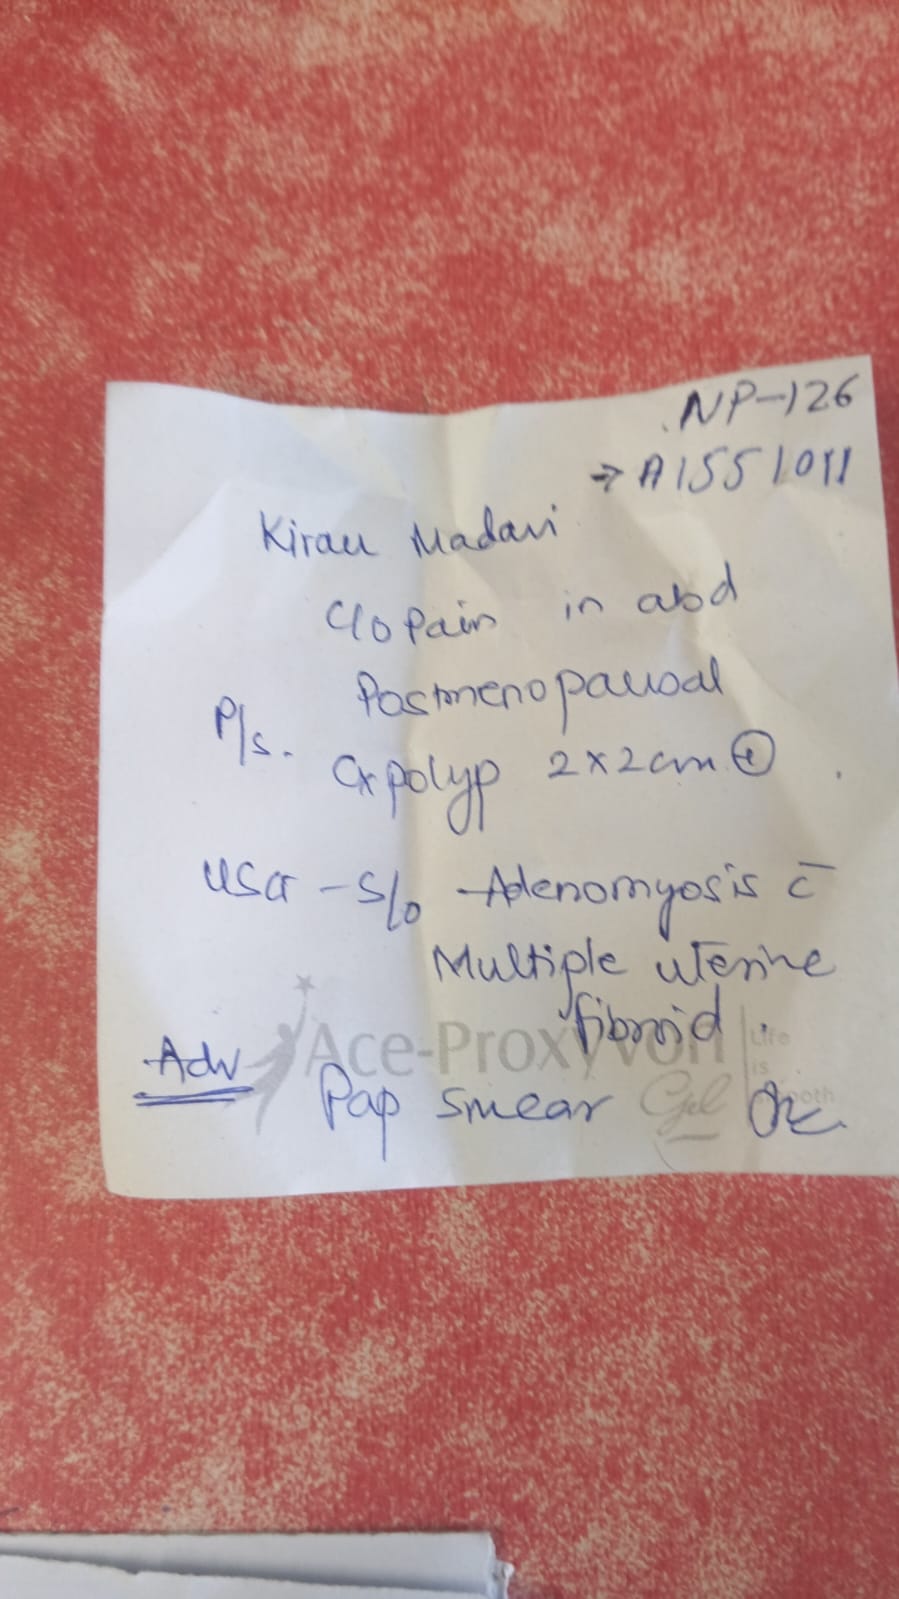 NP-126
→ A1551011
Kiran Madavi
C/o Pain in abd
Postmenopausal
P/s. Cx polyp 2x2cm ⊕
USG - S/o - Adenomyosis c̄
Multiple uterine
fibroid.
Ace-Proxyvon
Life
is
Adv
Pap smear
Gel